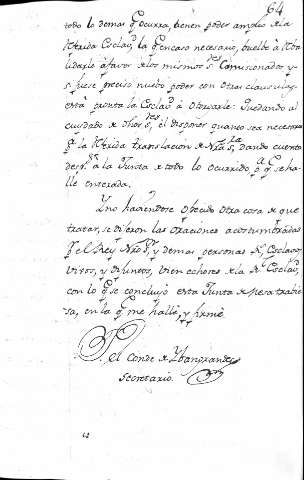 64
todo lo demas q.e ocurra, tienen poder amplio de la
referida Esclav.d la q.e en caso necesario, buelve à reba-
lidarlo à favor de los mismos S.res Comisionados y
si fuese preciso nuevo poder con otras clausulas,
està pronta la Esclav.d à otorgarle: Quedando al
cuidado de dhos S.res el disponer quanto sea necesario
p.a la referida translacion de Nra S.ra, dando cuenta
desp.s à la Junta de todo lo ocurrido, p.a q.e se ha-
lle enterada.
Y no haviendose ofrecido otra cosa de que
tratar, se dijeron las oraciones acostumbradas
p.r el Rey Nro S.r, y demas personas R.s, Esclavos
vivos, y difuntos, bien echores de la d.ha Esclav.d
con lo q.e se concluyó esta Junta
en la q.e me hallé, y firmé
el Conde de
Secretario.